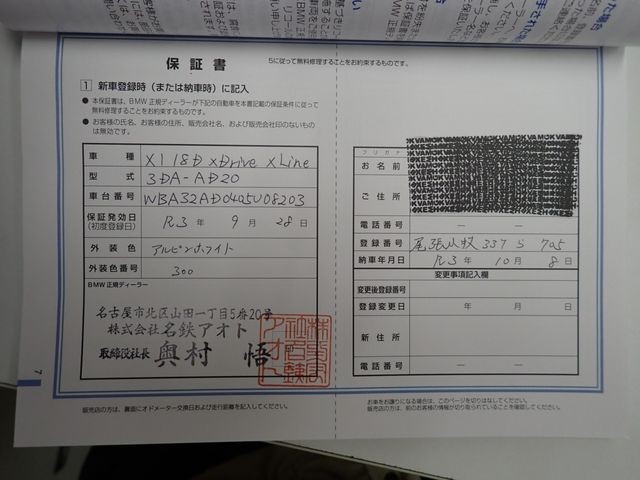 保証書
5に従って無料修理することをお約束するものです。
1 新車登録時（または納車時）に記入
● 本保証書は、BMW 正規ディーラーが下記の自動車を本書記載の保証条件に従って
無料修理することをお約束するものです。
● お客様の氏名、お客様の住所、販売会社名、および販売会社印のないもの
は無効です。
車種 X1 18D xDrive xLine
型式 3DA-AD20
車台番号 WBA32AD0405U08203
保証発効日
(初度登録日) R3年 9月 28日
外装色 アルピンホワイト
外装色番号 300
BMW 正規ディーラー
名古屋市北区山田一丁目5番20号
株式会社 名鉄アオト
取締役社長 奥村 悟
フリガナ
お名前
ご住所
電話番号 ― ―
登録番号 尾張小牧 337 S 705
納車年月日 R.3年 10月 8日
変更事項記入欄
変更後登録番号
登録変更日 年 月 日
新住所
電話番号 ― ―
販売店の方は、裏面にオドメーター交換日および走行距離を記入してください。
お車をお譲りになる場合は、このページを切りはなしてください。
販売店の方は、前のお客様の情報が切り取られていることを確認してください。
7